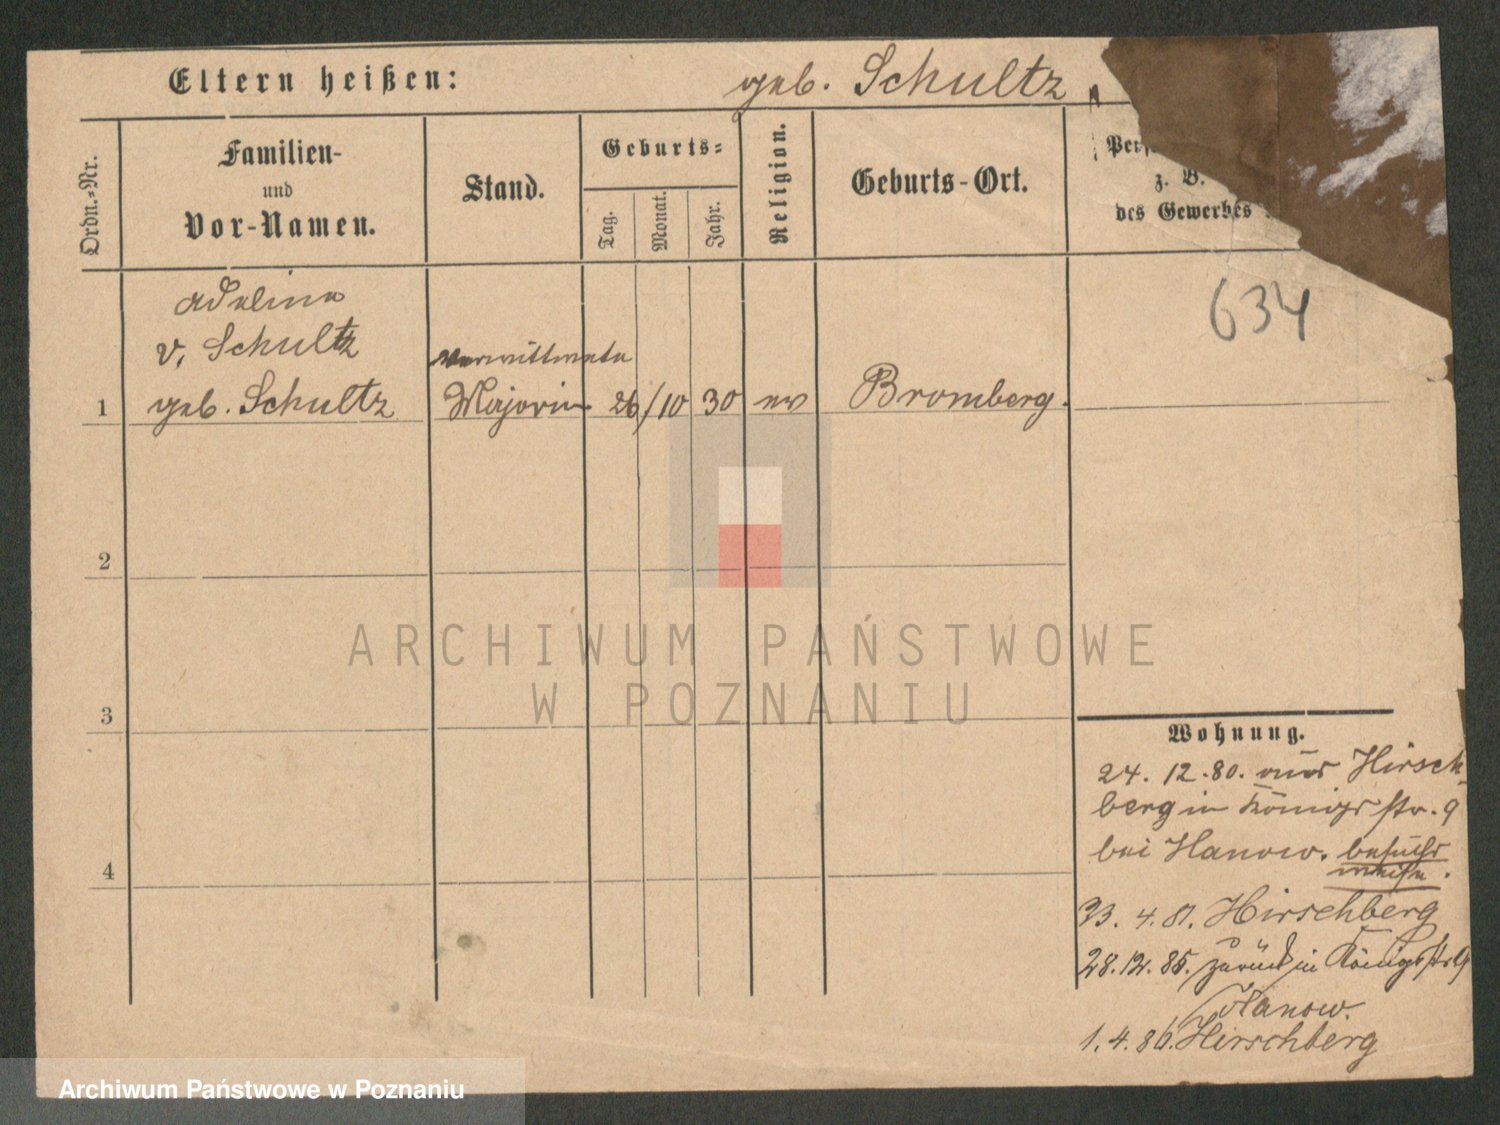 Eltern heißen: geb. Schultz
Ordn.-Nr.
Familien-
und
Vor-Namen.
Stand.
Geburts-
Tag.
Monat.
Jahr.
Religion.
Geburts-Ort.
z. B.
des Gewerbes
634
Adeline
v. Schultz
geb. Schultz
verwittwete
Majorin
1
26/10 30 ev
Bromberg.
2
3
4
ARCHIWUM PAŃSTWOWE
W POZNANIU
Wohnung.
24. 12. 80. aus Hirsch-
berg in Königsstr. 9
bei Hanow. besuchs
weise.
23. 4. 81. Hirschberg
28. 12. 85. zurück in Königsstr 9
Hanow.
1. 4. 86. Hirschberg
Archiwum Państwowe w Poznaniu